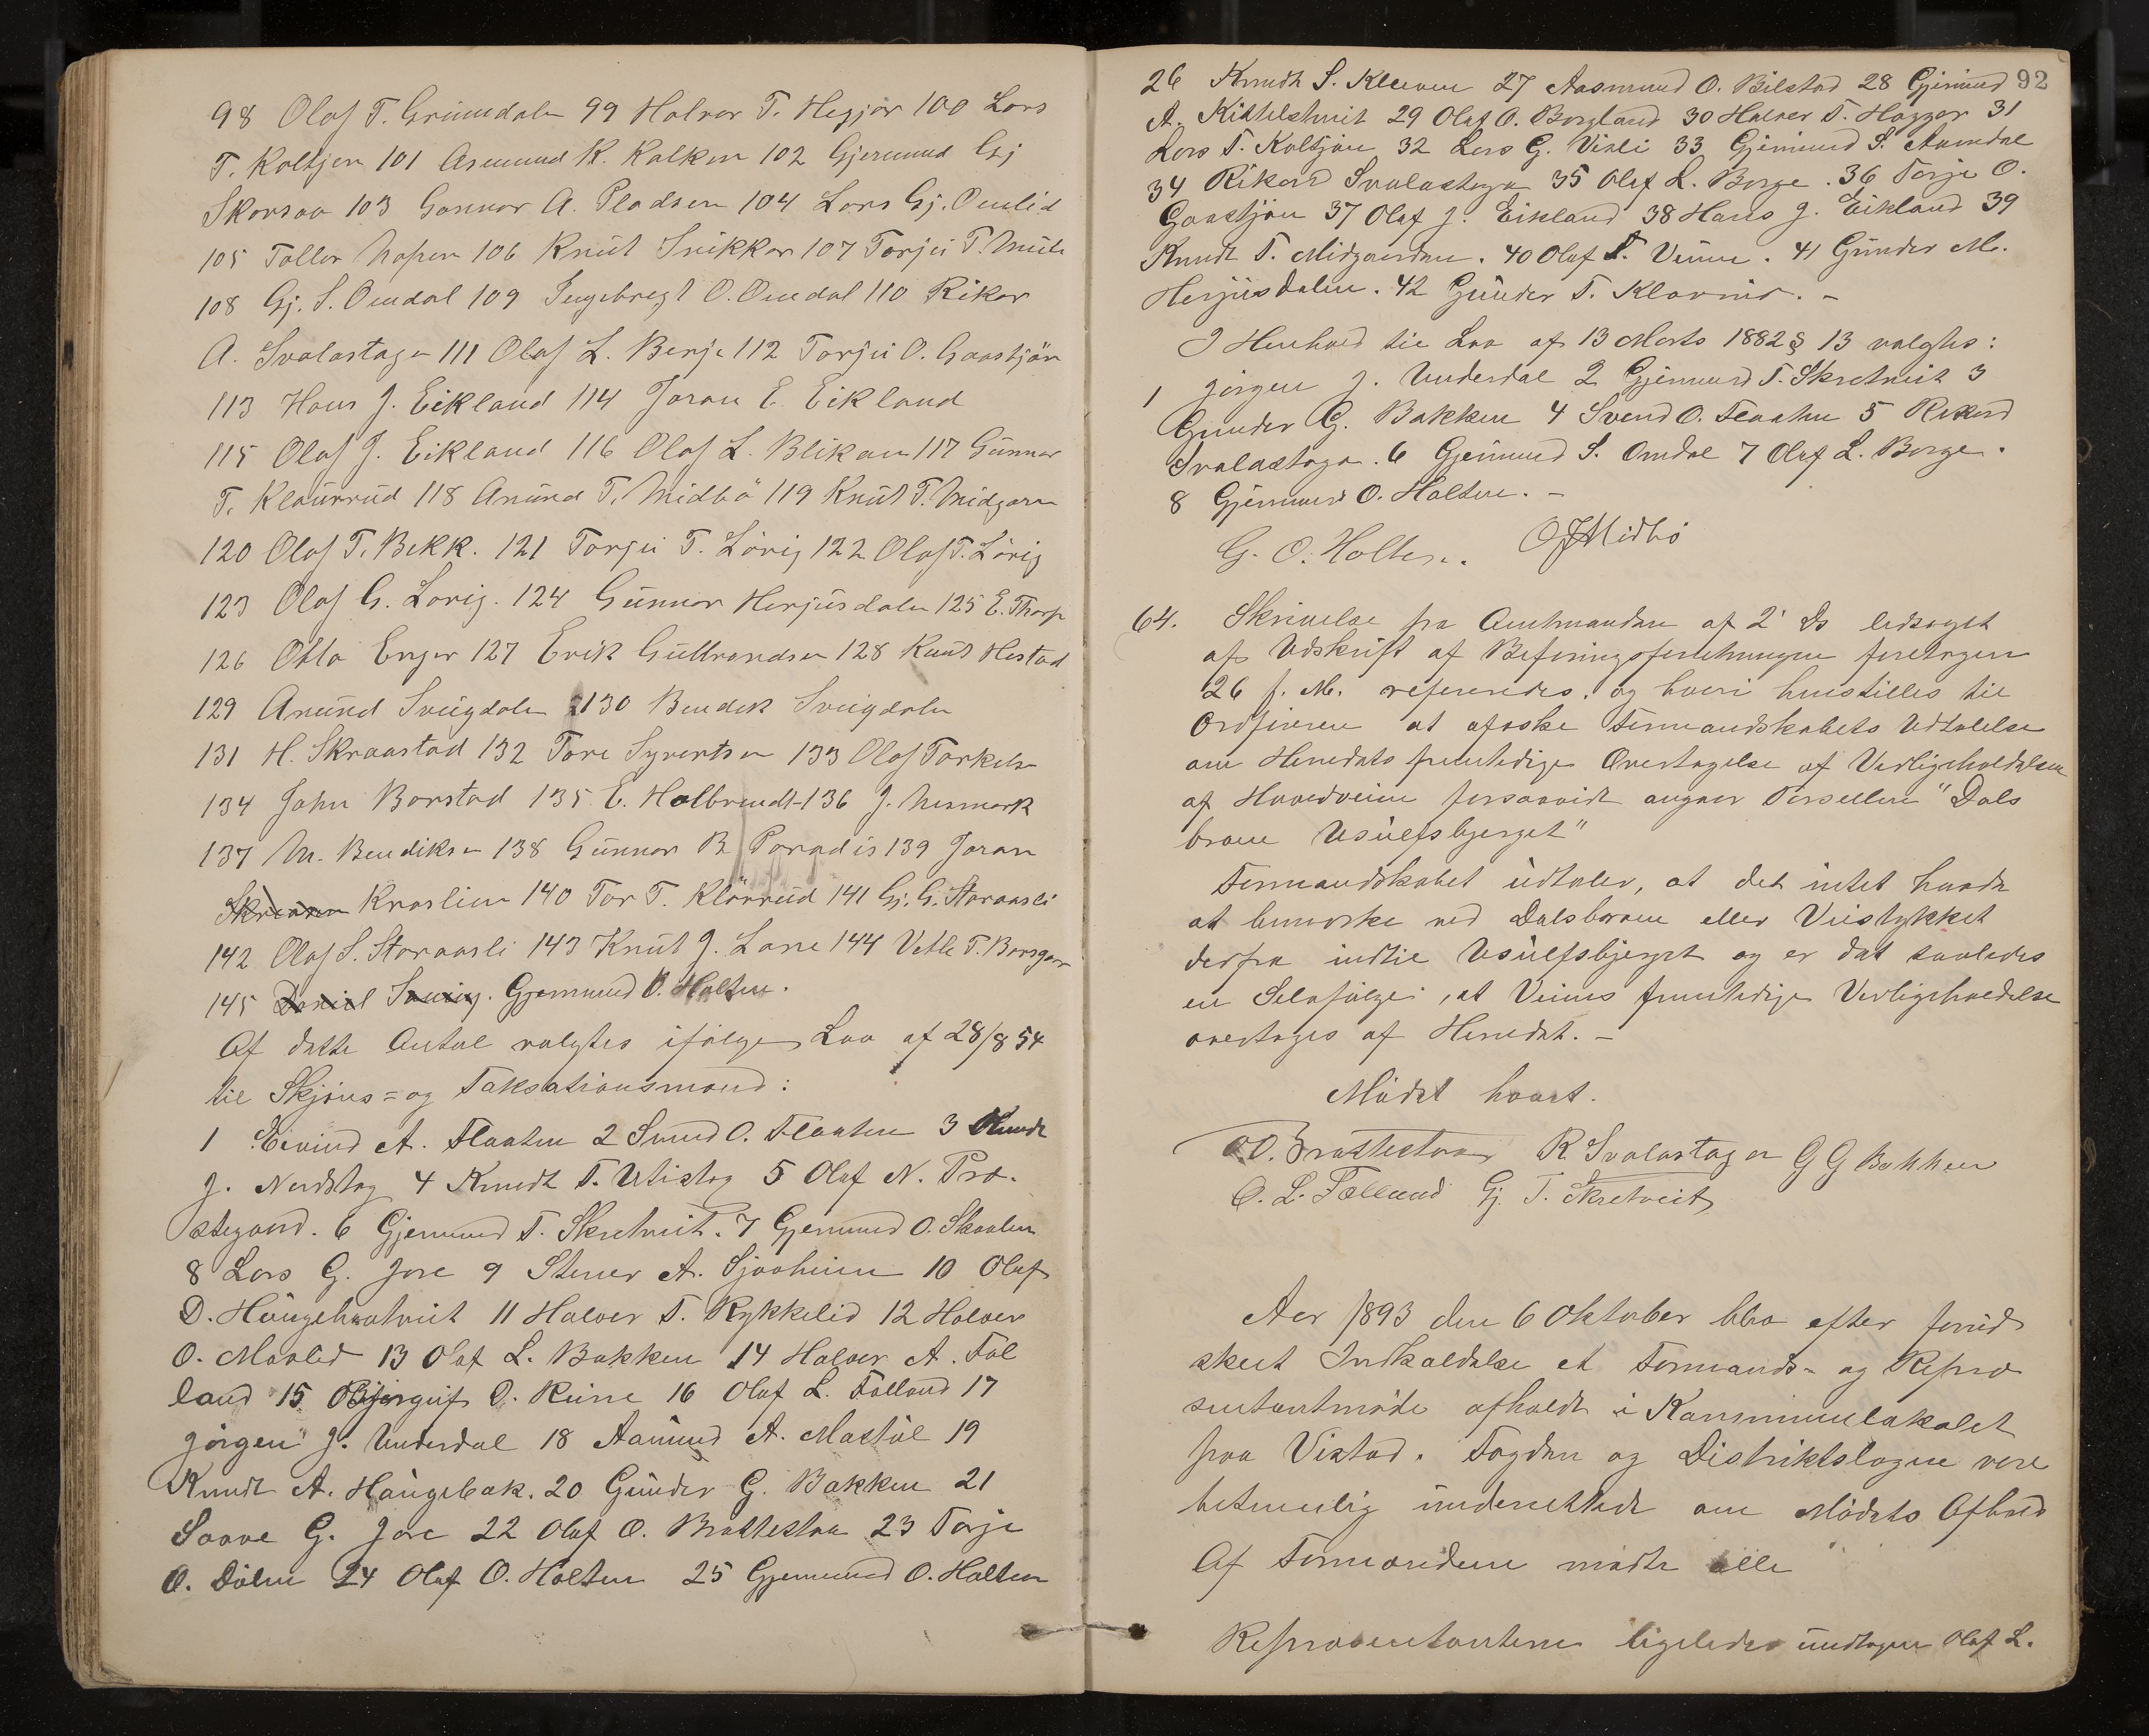 98 Olaf T. Grimdalen 99 Halvor T. Hegjar 100 Lars
T. Kaltjen 101 Asmund K. Kalken 102 Gjermund Gj
Skorsaa 103 Gunnar A. Pladsen 104 Lars Gj. Omlid
105 Tallov 106 Knut Snikkar 107 Torjei T.
108 Gj. S. Omdal 109 Ingebregt O. Omdal 110 Rikar
A. Svalastoga 111 Olaf L. Berje 112 Torjei O. Gaastjön
113 Hans J. Eikland 114 Joran E. Eikland
115 Olaf J. Eikland 116 Olaf L. Blikam 117 Gunnar
T. Klaurrud 118 Anund T. Midbö 119 Knut T. Midgarn
120 Olaf T. Bekk. 121 Torjei T. Lörig 122 Olaf T. Lörig
123 Olaf G. Lorig. 124 Gunnar Herjusdalen 125 E. Thorp
126 Otto Enger 127 Erik Gulbrandsen 128 Knut Hestad
129 Anund Sveigdalen 130 Bendek Sveigdalen
131 H. Skraastad 132 Tore Syvertsen 133 Olaf Torkels
134 John Borstad 135 E. Halbrendt 136 J. Nesmark
137 M. Bendiksen 138 Gunnar B. Paradis 139 Joran
Kraslien 140 Tor T. Klörrud 141 Gj. G. Storaasli
142 Olaf S. Storaasli 143 Knut J. Lone 144 Vetle T. Borsgarn
145 Daniel Gjermund O. Holten.
Af dette Antal valgtes ifølge Lov af 28/8 54
til Skjøns= og Taksationsmænd:
1 Eivind A. Flaaten 2 Svend O. Flaaten 3 Knudt
J. Nordstog 4 Knudt T. Utistog 5 Olaf N. Præ-
stegaard. 6 Gjermund T. Skretveit. 7 Gjermund O. Skaalen
8 Lars G. Jore 9 Stener A. Sjaaheim 10 Olaf
D. Haugehaatveit 11 Halvor T. Rykkelid 12 Halvor
O. Maalid 13 Olaf L. Bakken 14 Halvor A. Föl
land 15 Bjørguf O. Reine 16 Olaf L. Følland 17
Jörgen J. Underdal 18 Aanund A. Mastöl 19
Knudt A. Haugebak. 20 Gunder G. Bakken 21
Saave G. Jore 22 Olaf O. Brattestaa 23 Torje
O. Dölen 24 Olaf O. Holten 25 Gjermund O. Holten
92
26 Knudt S. Kleiven 27 Aasmund O. Bilstad 28 Gjermund
A. Kittelstveit 29 Olaf O. Borgland 30 Halvor T. Heggar 31
Lars T. Kaltjön 32 Lars G. Visli 33 Gjermund S. Aamdal
34 Rikard Svalastoga 35 Olaf L. Berge. 36 Torje O.
Gaastjön 37 Olaf J. Eikland 38 Hans J. Eikland 39
Knudt T. Midgaarden. 40 Olaf T. Vinne. 41 Gunder M.
Herjusdalen. 42 Gunder T. Klovrud. –
I Henhold til Lov af 13 Marts 1882 § 13 valgtes:
1 Jørgen J. Underdal 2 Gjermund T. Skretveit 3
Gunder G. Bakken 4 Svend O. Flaaten 5 Rikard
Svalastoga. 6 Gjermund S. Omdal 7 Olaf L. Berge.
8 Gjermund O. Holten. –
G. O. Holten. O J Midbö
64. Skrivelse fra Amtmanden af 2' Ds ledsaget
af Udskrift af Befaringsforretningen foretagen
26 f. M. refereredes, og hvori henstilles til
Ordføreren at afæske Formandskabets Udtalelse
om Herredets fremtidige Overtagelse af Vedligeholdelsen
af Hovedveien forsaavidt angaar Parsellen "Dals
broen Usulfsbjerget"
Formandskabet udtaler, at det intet havde
at bemærke ved Dalsbroen eller Veistykket
derfra indtil Usulfsbjerget og er det saaledes
en Selvfølge, at Veiens fremtidige Vedligeholdelse
overtages af Herredet. –
Mødet hævet.
O O. Brattestaa R Svalastoga G G Bakken
O. L. Følland Gj. T. Skretveit
Aar 1893 den 6 Oktober blev efter forud
skeet Indkaldelse et Formands- og Repræ
sentantmøde afholdt i Kommunelokalet
paa Vistad. Fogden og Distriktslægen vare
betimelig underrettede om Mødets Afhold
Af Formændene mødte alle
Repræsentanterne ligeledes undtagen Olaf L.